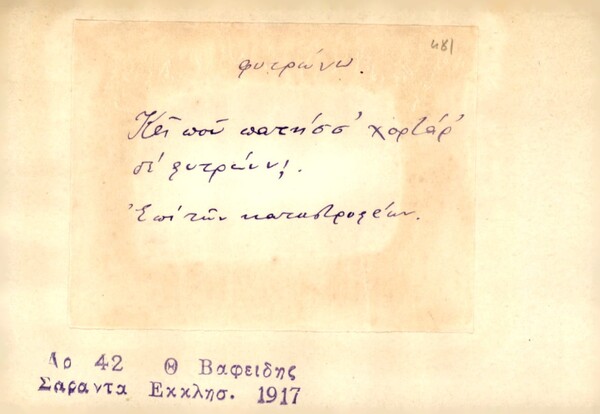 481
φυτρώνω.
Κεῖ ποῦ πατήσσ' χορτάρ'
δὲ φυτρώνν!.
Ἐπὶ τῶν καταστροφέων.
Λο 42 Θ Βαφειδης
Σαραντα Εκκλησ. 1917